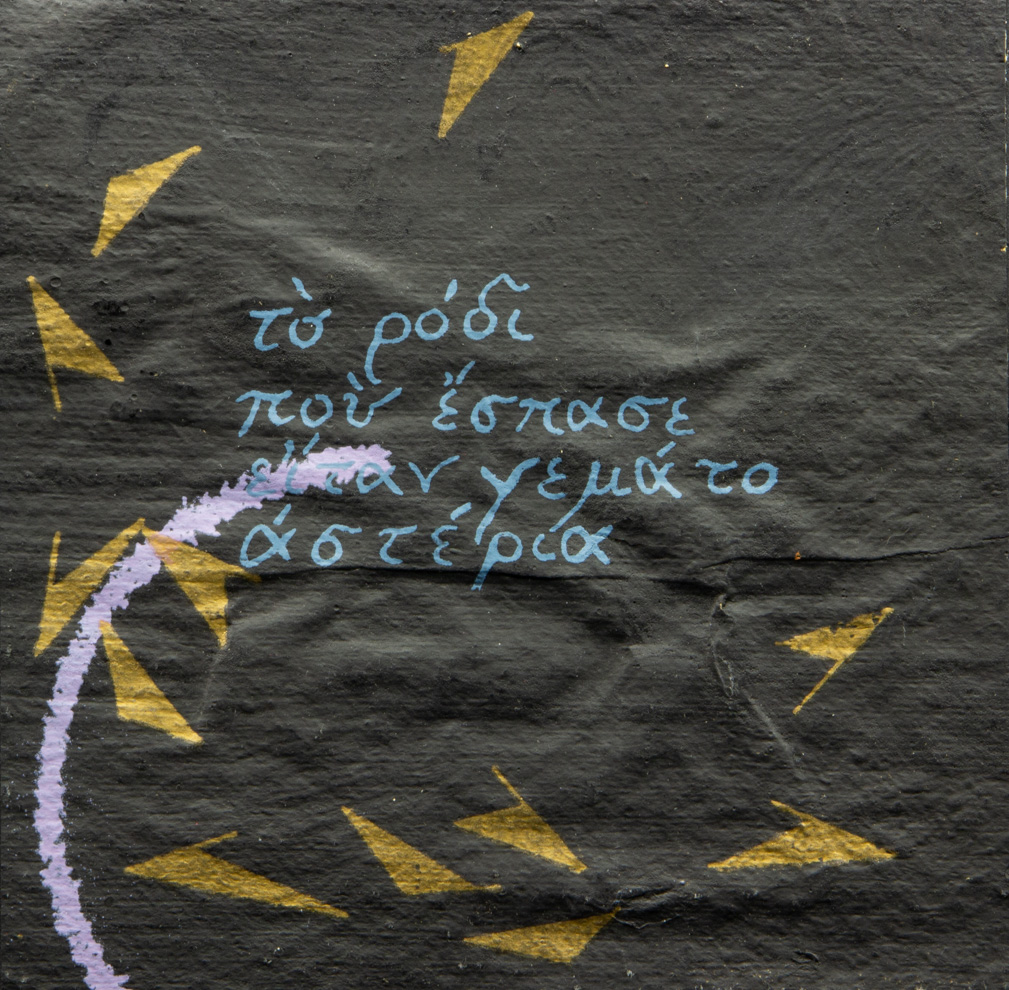 τὸ ρόδι
ποὺ ἔσπασε
εἴταν γεμάτο
ἀστέρια